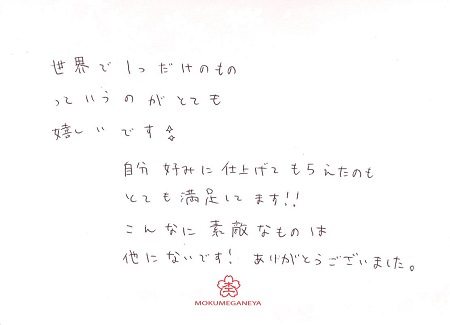 世界で1つだけのもの
っていうのがとても
嬉しいです
自分好みに仕上げてもらえたのも
とても満足してます!!
こんなに素敵なものは
他にないです! ありがとうございました。
MOKUMEGANEYA